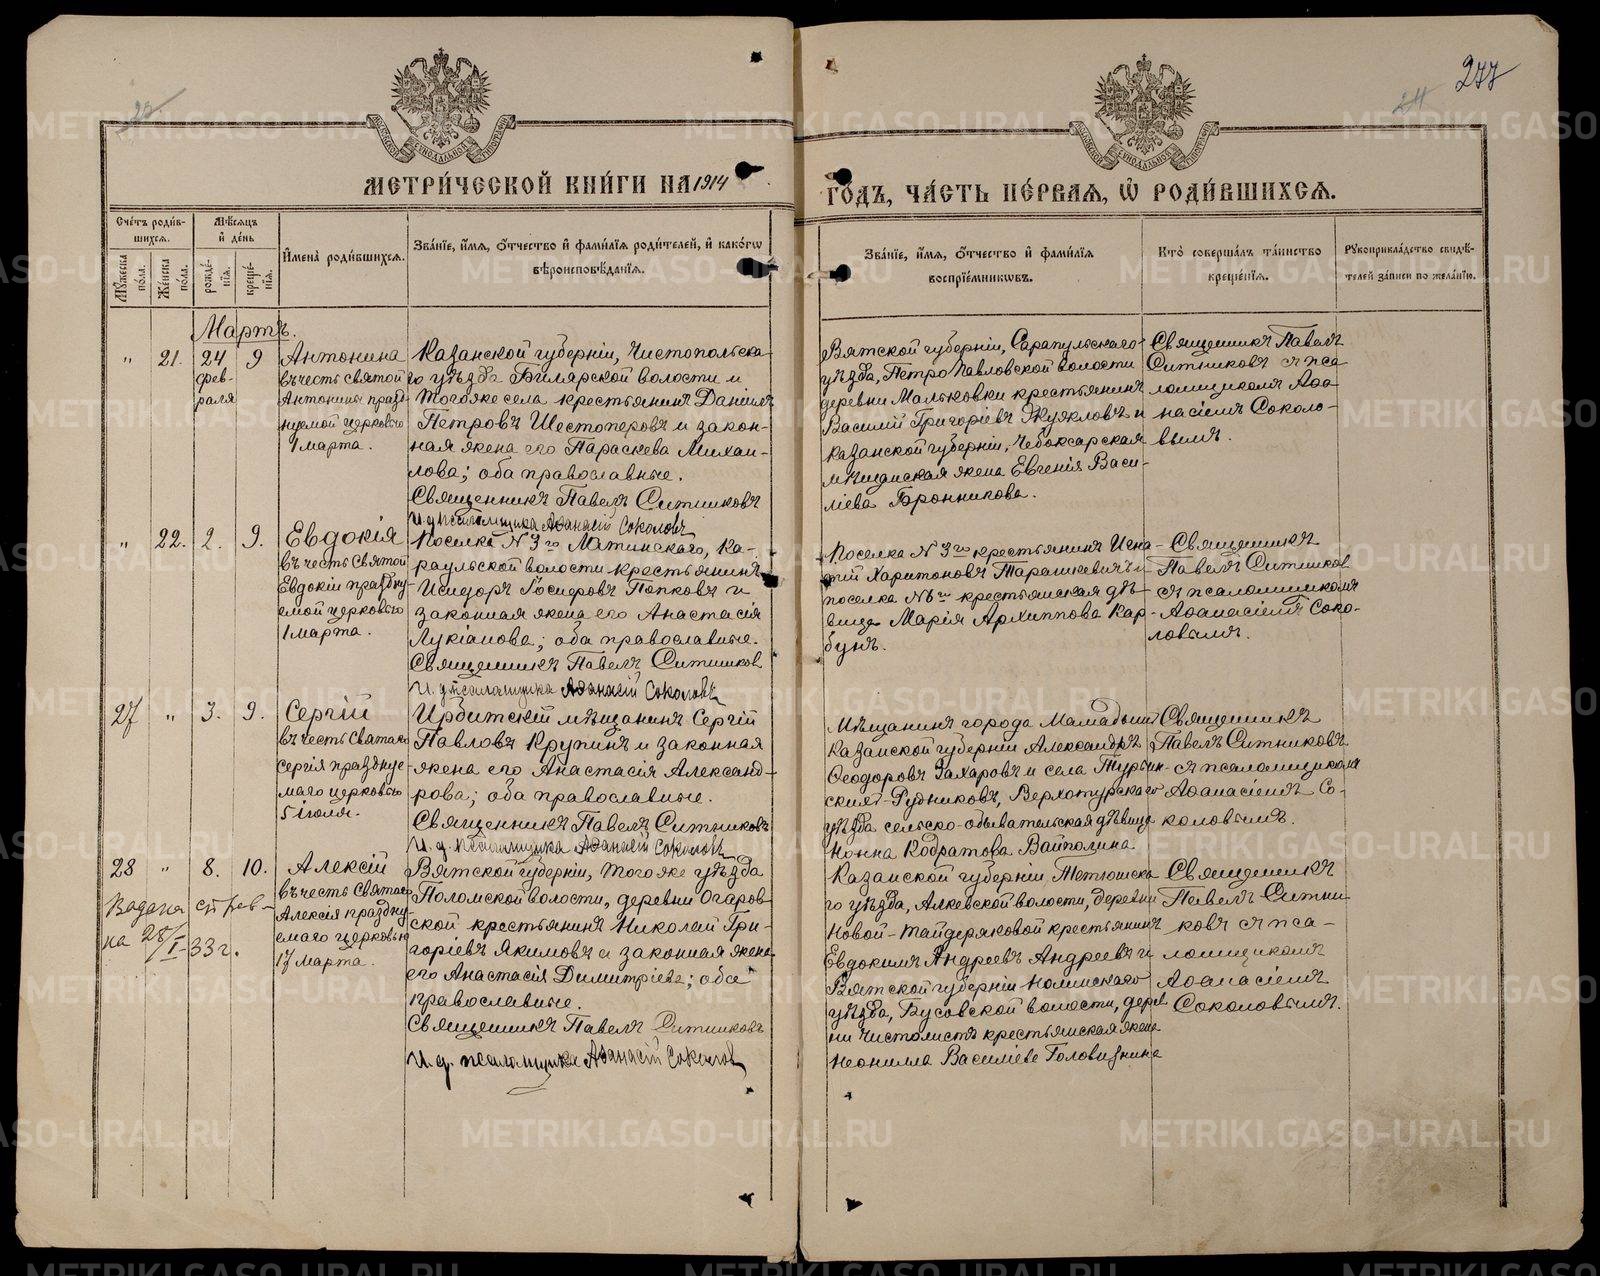 277
24
МЕТРИ́ЧЕСКОЙ КНИ́ГИ НА 1914
ГО́ДЪ, ЧА́СТЬ ПЕ́РВАЯ, Ѡ҆ РОДИ́ВШИХСЯ.
Сче́тъ роди́в-
шихся.
Му́жеска по́ла.
Же́нска по́ла.
Мѣ́сяцъ
и҆ де́нь
рожде́-
нія.
креще́-
нія.
И҆мена̀ роди́вшихся.
Зва́ніе, и҆́мя, ѻ҆́тчество и҆ фами́лія роди́телей, и҆ како́гѡ
вѣроисповѣ́данія.
Зва́ніе, и҆́мя, ѻ҆́тчество и҆ фами́лія
воспріе́мникѡвъ.
Кто̀ соверша́лъ та́инство
креще́нія.
Рукоприкла́дство свидѣ́-
телей за́писи по жела́нію.
Мартъ.
" 21. 24 9
фев-
раля
Антонина
въ честь святой
Антонины празд-
нуемой церковью
1 марта.
Казанской губерніи, Чистопольска-
го уѣзда Билярской волости и
того же села крестьянинъ Даніилъ
Петровъ Шестоперовъ и закон-
ная жена его Параскева Михаи-
лова; оба православные.
Священникъ Павелъ Ситниковъ
И. д. псаломщика Аѳанасій Соколовъ
Вятской губерніи, Сарапульскаго
уѣзда, Петро Павловской волости
деревни Мальковки крестьянинъ
Василій Григоріевъ и
Казанской губерніи, Чебоксарская
мѣщанская жена Евгенія Васи-
ліева Бронникова.
Священникъ Павелъ
Ситниковъ съ пса-
ломщикомъ Аѳа-
насіемъ Соколо-
вымъ.
" 22. 2. 9.
Евдокія
въ честь святой
Евдокіи праздну-
емой церковью
1 марта.
Поселка N 3го Латинскаго, Ка-
раульской волости крестьянинъ
Исидоръ Іосифовъ Попковъ и
законная жена его Анастасія
Лукіанова; оба православные.
Священникъ Павелъ Ситников
И. д. псаломщика Аѳанасій Соколовъ
Поселка N 3го крестьянинъ Игна-
тій Харитоновъ Тарашкевичъ и
поселка N 6го крестьянская дѣ-
вица Марія Архиппова Кар-
бунъ.
Священникъ
Павелъ Ситников
съ псаломщикомъ
Аѳанасіемъ Соко-
ловымъ.
27 " 3. 9.
Сергій
въ честь святаго
Сергія праздну-
маго церковью
5 іюля.
Ирбитскій мѣщанинъ Сергій
Павловъ Крупинъ и законная
жена его Анастасія Александ-
рова; оба православные.
Священникъ Павелъ Ситниковъ
И. д. псаломщика Аѳанасій Соколовъ
Мѣщанинъ города Мамадышъ
Казанской губерніи Александръ
Ѳеодоровъ Захаровъ и села Турьин-
скихъ-Рудниковъ, Верхотурскаго
уѣзда сельско-обывательская дѣвица
Нонна Кодратова Вайполина.
Священникъ
Павелъ Ситниковъ
съ псаломщикомъ
Аѳанасіемъ Со-
коловымъ.
28 " 8. 10.
Выдана справ-
на 28/I-33 г.
Алексій
въ честь святаго
Алексія праздну-
емаго церковью
17 марта.
Вятской губерніи, того же уѣзда
Поломской волости, деревни Огаров-
ской крестьянинъ Николай Гри-
горіевъ Якимовъ и законная жена
его Анастасія Димитріева; оба
православные.
Священникъ Павелъ Ситниковъ
И. д. псаломщика Аѳанасій Соколов
Казанской губерніи Тетюшска-
го уѣзда, Алкеевской волости, деревни
Новой-Тайдеряковой крестьянинъ
Евдокимъ Андреевъ Андреевъ и
Вятской губерніи Нолинскаго
уѣзда, Бусовской волости, дерев
ни Чистолистъ крестьянская жена
Неонилла Василіева Головизнина
Священникъ
Павелъ Ситни-
ковъ съ пса-
ломщикомъ
Аѳанасіемъ
Соколовымъ.
METRIKI.GASO-URAL.RU